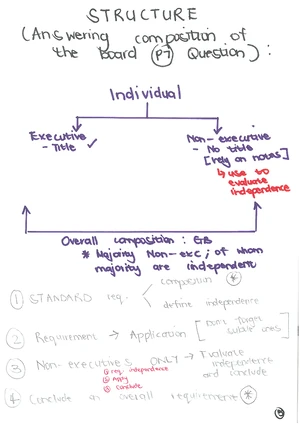 STRUCTURE
(Answering composition of
the board (P7) Question):
Individual
Executive
- Title ✓
Non-executive
- No title
[rely on notes]
↳ use to
evaluate
independence
Overall composition: GB
* Majority Non-exc; of whom
majority are independent
① STANDARD req. < composition *
define independence
② Requirement → Application [Don't target
subtle ones]
③ Non-executives ONLY → Evaluate
independence
and conclude
① req. independence
② Apply
③ Conclude
④ Conclude on overall requirement *